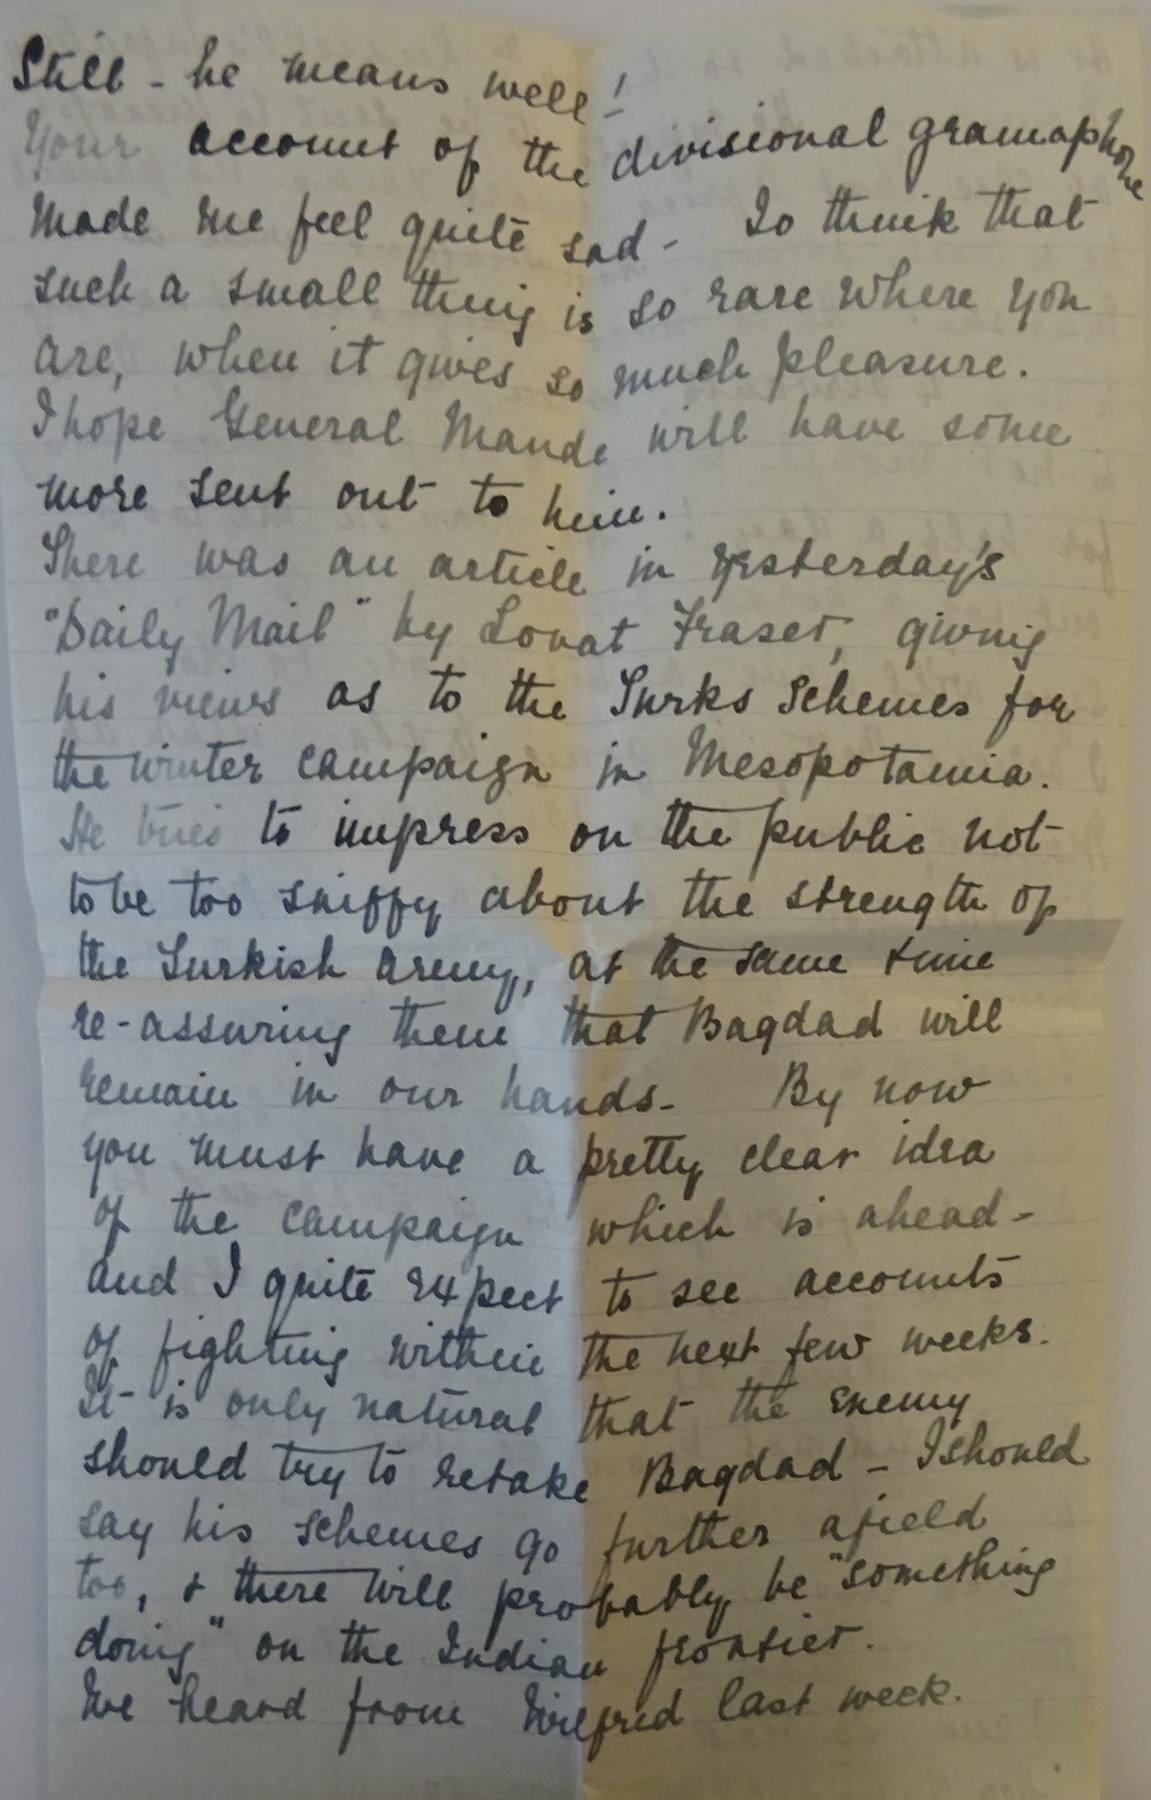 Still - he means well!
Your account of the divisional gramaphone
made me feel quite sad - To think that
such a small thing is so rare where you
are, when it gives so much pleasure.
I hope General Maude will have some
more sent out to him.
There was an article in yesterday's
"Daily Mail" by Lovat Fraser, giving
his views as to the Turks schemes for
the winter campaign in Mesopotamia.
He tries to impress on the public not
to be too sniffy about the strength of
the Turkish Army, at the same time
re-assuring them that Bagdad will
remain in our hands - By now
you must have a pretty clear idea
of the campaign which is ahead -
and I quite expect to see accounts
of fighting within the next few weeks.
It is only natural that the enemy
should try to retake Bagdad - I should
say his schemes go further afield
too, & there will probably be "something
doing" on the Indian frontier.
We heard from Wilfrid last week.